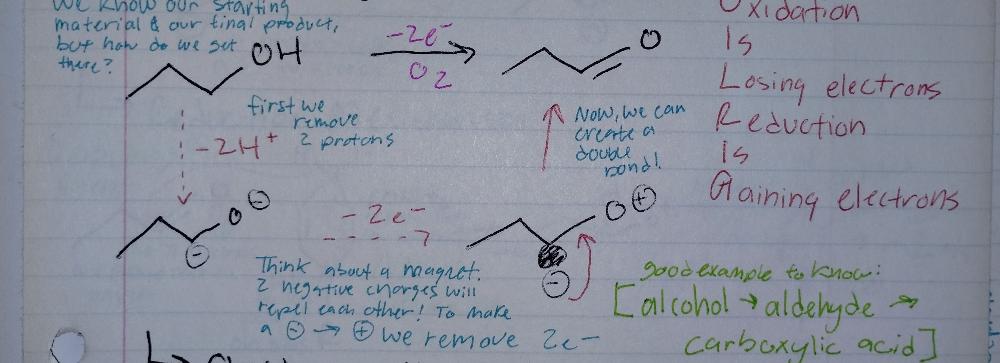 We know our starting
material & our final product,
but how do we get
there?
OH
-2e-
O2
O
first we
remove
2 protons
-2H+
Now, we can
create a
double
bond!
Oxidation
Is
Losing electrons
Reduction
Is
Gaining electrons
O ⊖
⊖
-2e-
O ⊕
⊖
Think about a magnet.
2 negative charges will
repel each other! To make
a ⊖ → ⊕ we remove 2e-
good example to know:
[alcohol → aldehyde →
carboxylic acid]